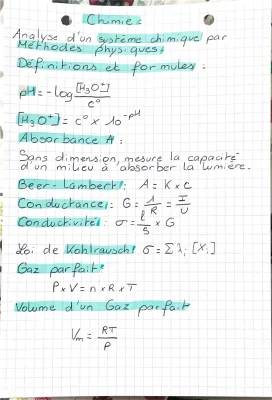 Chimie :
Analyse d'un système chimique par
Méthodes physiques.
Définitions et formules :
pH = -log [H₃O⁺]/c°
[H₃O⁺] = c° × 10^-pH
Absorbance A :
Sans dimension, mesure la capacité
d'un milieu à absorber la lumière.
Beer-Lambert : A = K × c
Conductance : G = 1/R = I/U
Conductivité : σ = l/S × G
Loi de Kohlrausch : σ = Σ λᵢ [Xᵢ]
Gaz parfait :
P × V = n × R × T
Volume d'un Gaz parfait
Vm = RT/P